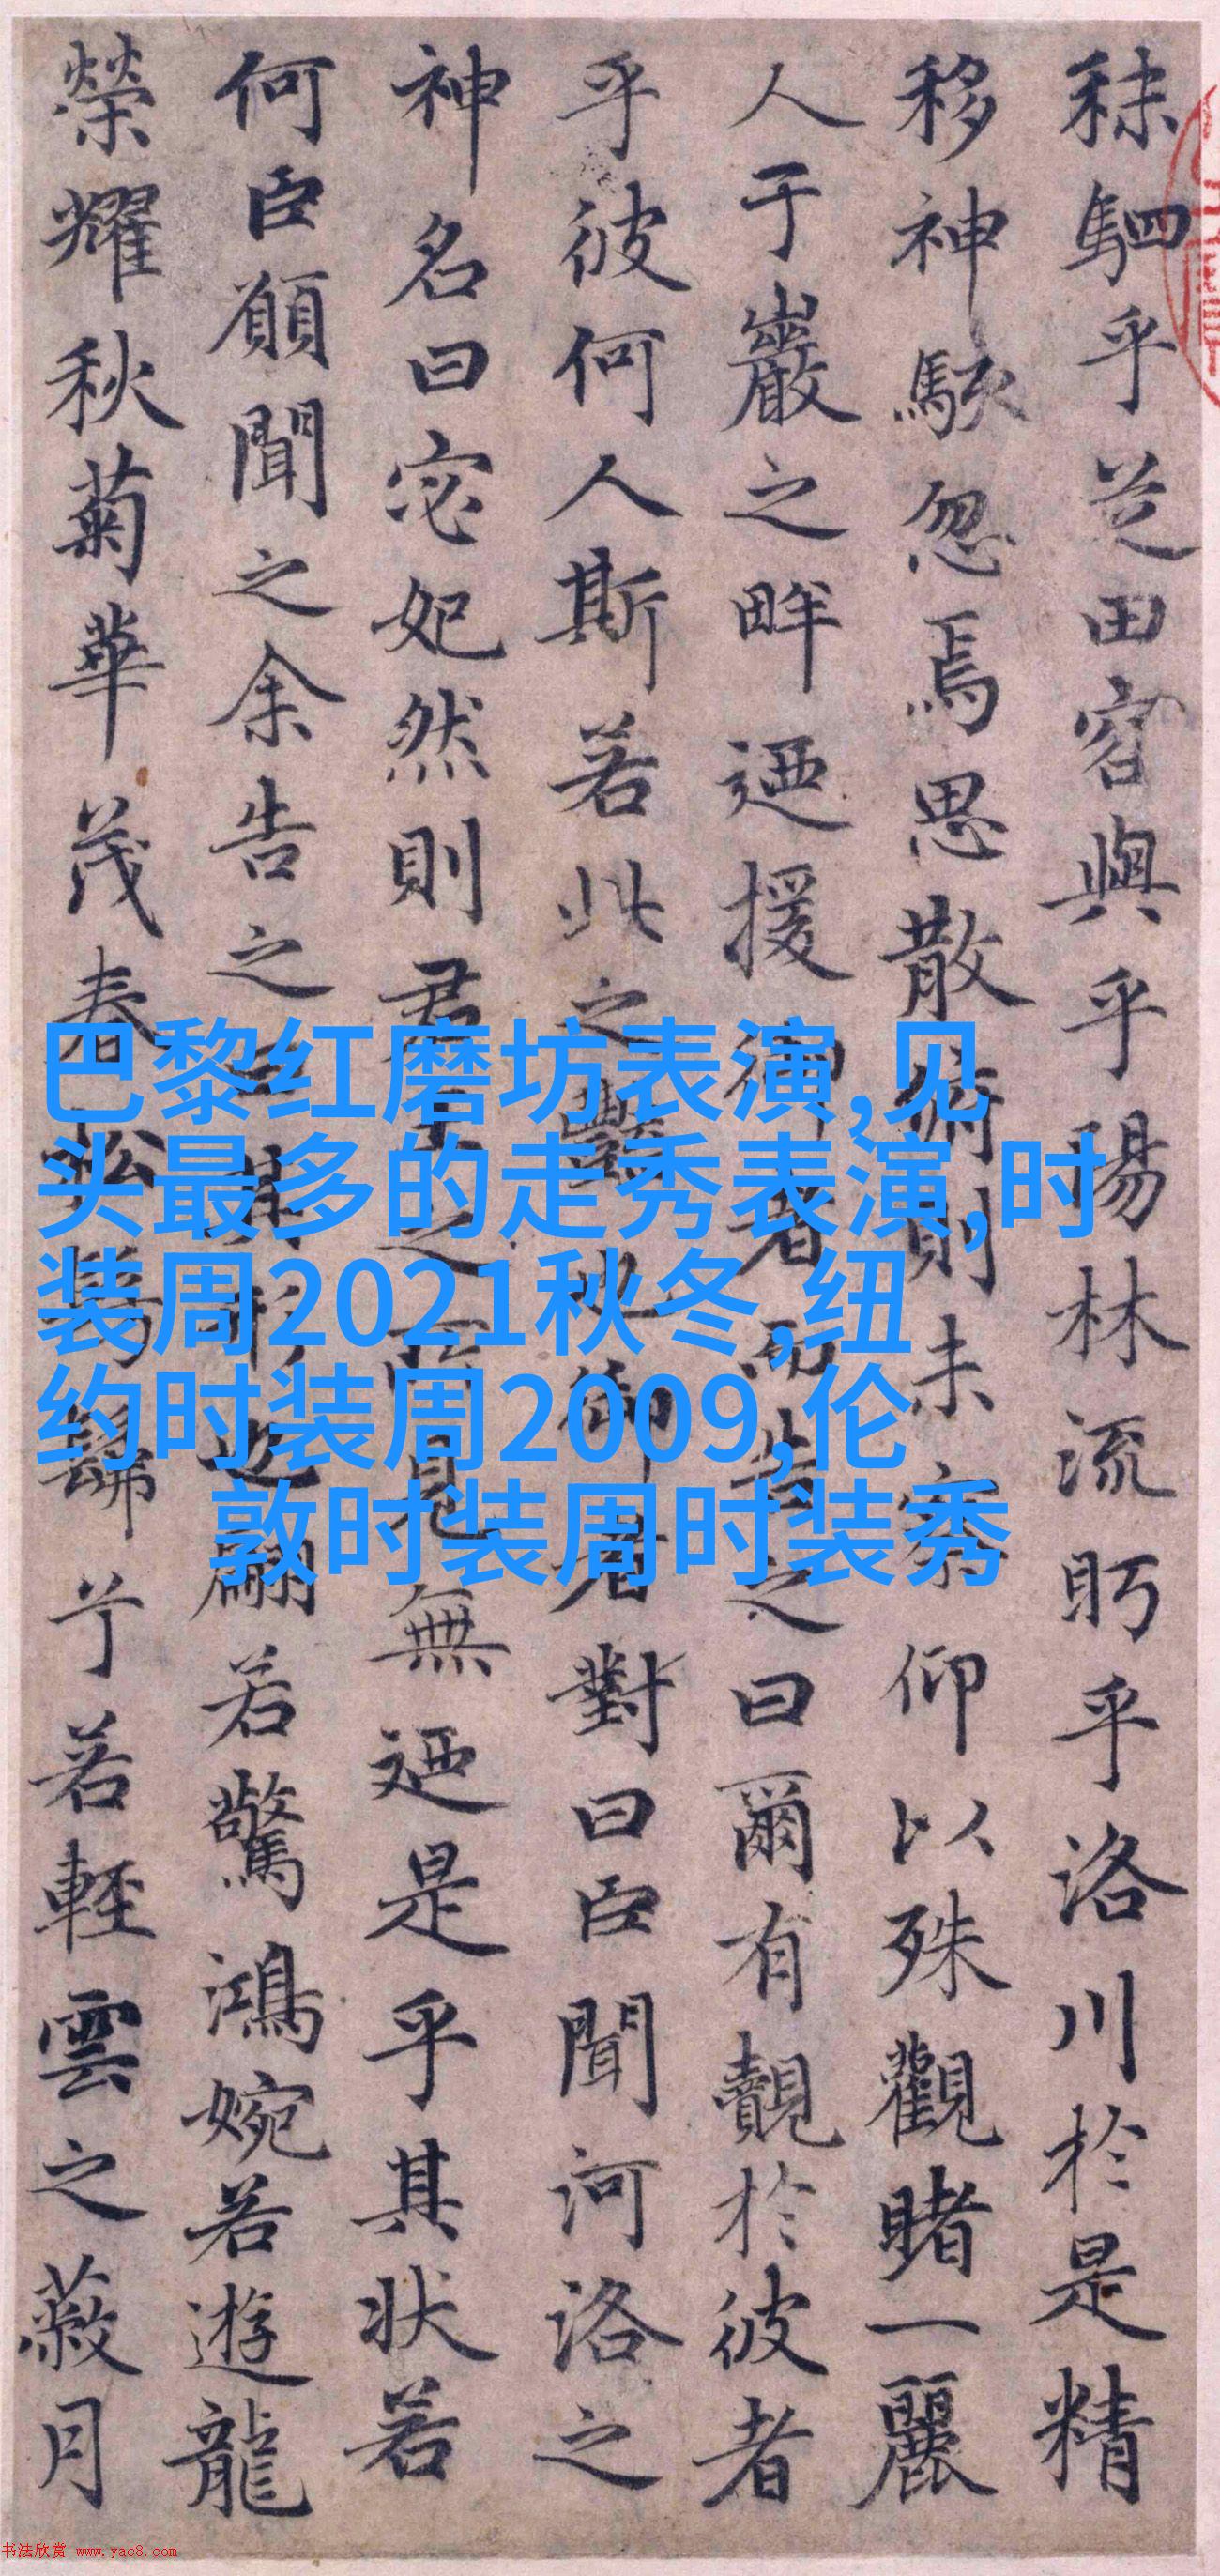 秣駟乎芝田容與乎陽林流眄乎洛川於是精
移神駭忽焉思散俯則未察仰以殊觀睹一麗
人于巖之畔迺援御者而告之曰爾有覿於彼者
乎彼何人斯若此之豔也御者對曰臣聞河洛之
神名曰宓妃然則君王之所見無迺是乎其狀若
何臣願聞之余告之曰其形也翩若驚鴻婉若遊龍
榮耀秋菊華茂春松髣髴兮若輕雲之蔽月
巴黎红磨坊表演,见
头最多的走秀表演,时
装周2021秋冬,纽
约时装周2009,伦
敦时装周时装秀
书法欣赏 www.yac8.com